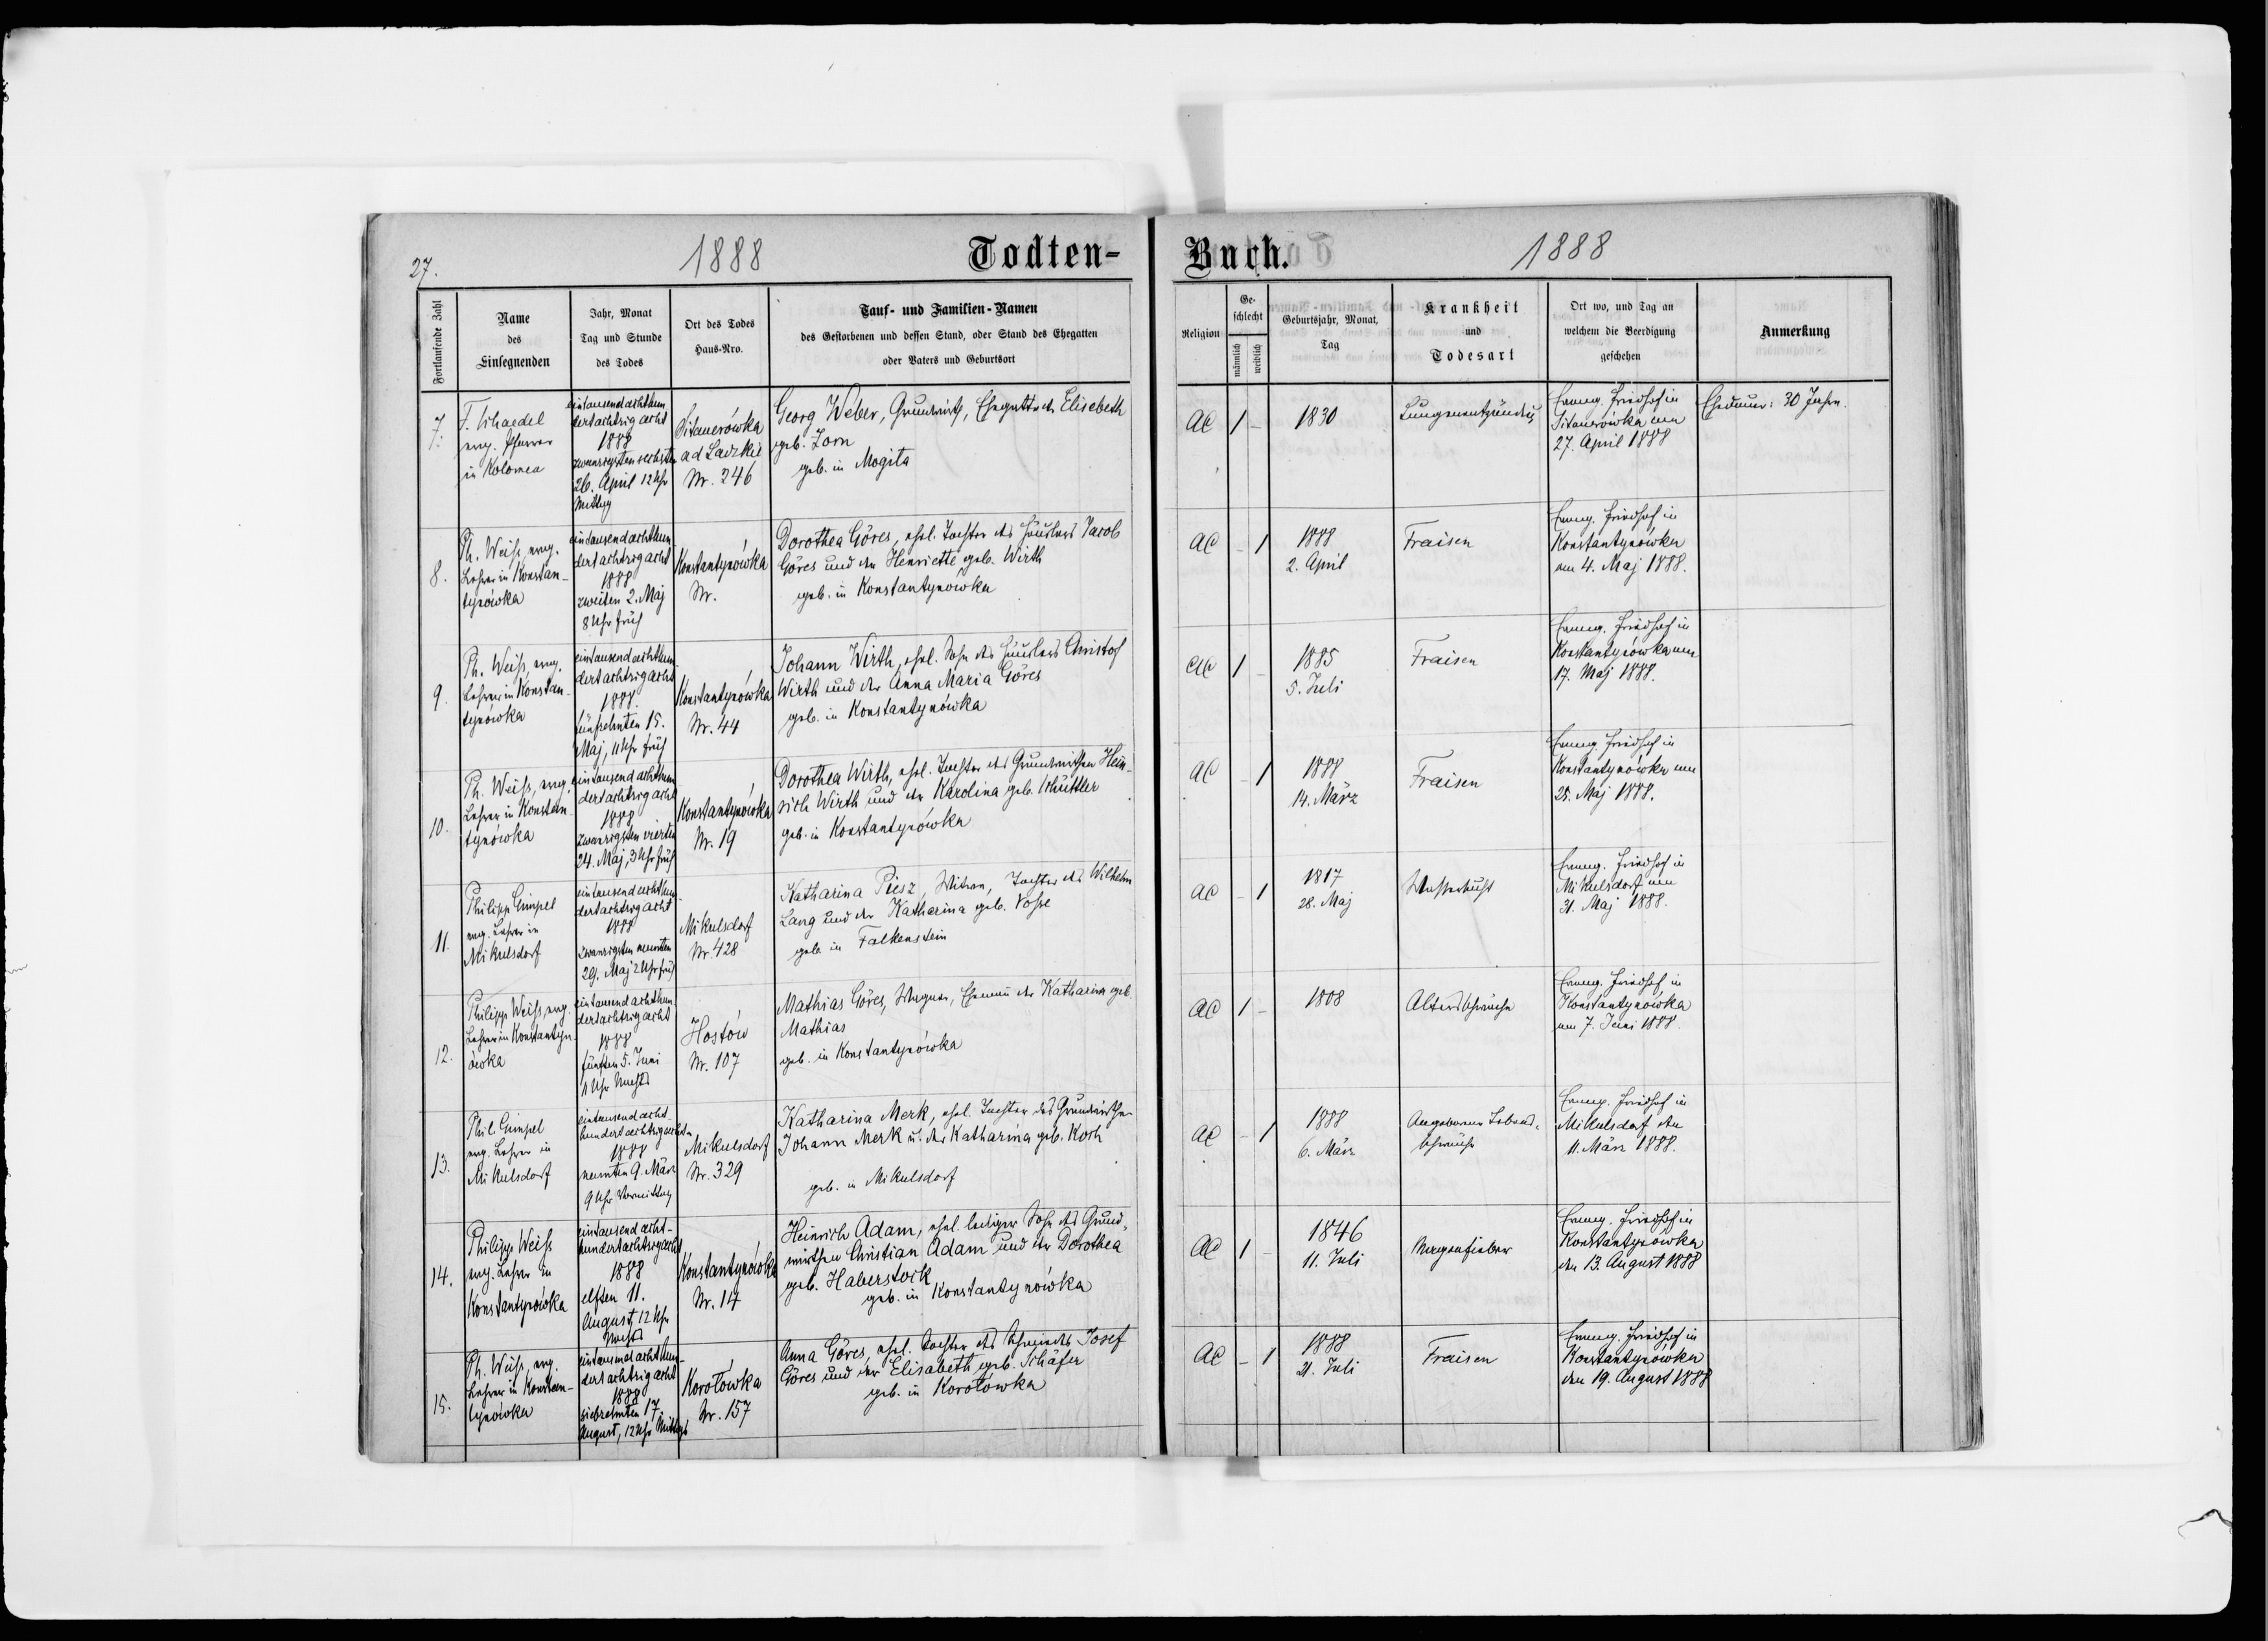 27.
1888
Todten-
Buch.
1888
Fortlaufende Zahl
Name
des
Einsegnenden
Jahr, Monat
Tag und Stunde
des Todes
Ort des Todes
Haus-Nro.
Tauf- und Familien-Namen
des Gestorbenen und dessen Stand, oder Stand des Ehegatten
oder Vaters und Geburtsort
Religion
Ge-
schlecht
männlich
weiblich
Geburtsjahr, Monat,
Tag
Krankheit
und
Todesart
Ort wo, und Tag an
welchem die Beerdigung
geschehen
Anmerkung
7.
evng. Pfarrer
in Kolomea
eintausendachthun
dertachtzig acht
1888
zwanzigsten sechsten
26. April 12 Uhr
Mittag
Sitauerówka
ad Ladzkie
Nr. 246
Georg Weber, Grundwirth, Ehegatte der Elisebeth
geb. Zorn
geb. in Mogila
AC
1
-
1830
Lungenentzündung
Evang. Friedhof in
Sitauerówka am
27. April 1888
Ehedauer: 30 Jahre.
8.
Ph. Weiß, evng.
Lehrer in Konstan-
tynówka
eintausendachthun
dertachtzigacht
1888
zweiten 2. Maj
8 Uhr früh
Konstantynówka
Nr.
Dorothea Göres, ehel. Tochter des Häuslers Jacob
Göres und der Henriette geb. Wirth
geb. in Konstantynówka
AC
-
1
1888
2. April
Fraisen
Evang. Friedhof in
Konstantynówka
am 4. Maj 1888.
9.
Ph. Weiß, evng.
Lehrer in Konstan-
tynówka
eintausendachthun-
dertachtzigacht
1888.
fünfzehnten 15.
Maj, 11 Uhr früh
Konstantynówka
Nr. 44
Johann Wirth, ehel. Sohn des Häuslers Christof
Wirth und der Anna Maria Göres
geb. in Konstantynówka
AC
1
-
1885
5. Juli
Fraisen
Evang. Friedhof in
Konstantynówka am
17. Maj 1888.
10.
Ph. Weiß, evng.
Lehrer in Konstan-
tynówka
eintausendachthun
dertachtzigacht
1888
zwanzigsten vierten
24. Maj, 3 Uhr früh
Konstantynówka
Nr. 19
Dorothea Wirth, ehel. Tochter des Grundwirthen Hein-
rich Wirth und der Karolina geb. Schüttler
geb. in Konstantynówka
AC
-
1
1888
14. März
Fraisen
Evang. Friedhof in
Konstantynówka am
25. Maj 1888.
11.
Philipp Gimpel
evng. Lehrer in
Mikulsdorf
eintausendachthun
dertachtzigacht
1888
zwanzigsten neunten
29. Maj 2 Uhr früh
Mikulsdorf
Nr. 428
Katharina Piesz, Witwe, Tochter des Wilhelm
Lang und der Katharina geb.
geb. in Falkenstein
AC
-
1
1817
28. Maj
Evang. Friedhof in
Mikulsdorf am
31. Maj 1888.
12.
Philipp Weiß, evng.
Lehrer in Konstantyn-
ówka
eintausendachthun
dertachtzigacht
1888
fünften 5. Juni
11 Uhr Nachts
Hostów
Nr. 107
Mathias Göres, Wagner, Ehemann der Katharina geb
Mathias
geb. in Konstantynówka
AC
1
-
1808
Altersschwäche
Evang. Friedhof in
Konstantynówka
am 7. Juni 1888.
13.
Phil. Gimpel
evng. Lehrer in
Mikulsdorf
eintausendacht
hundertachtzigacht
1888
neunten 9. März
9 Uhr Vormittag
Mikulsdorf
Nr. 329
Katharina Merk, ehel. Tochter des Grundwirthen
Johann Merk u. der Katharina geb. Koch
geb. in Mikulsdorf
AC
-
1
1888
6. März
Angeborene Lebens-
schwäche
Evang. Friedhof in
Mikulsdorf den
11. März 1888.
14.
Philipp Weiß
evng. Lehrer in
Konstantynówka
eintausendacht-
hundertachtzigacht
1888
elften 11.
August, 12 Uhr
Nachts
Konstantynówka
Nr. 14
Heinrich Adam, ehel. lediger Sohn des Grund-
wirthen Christian Adam und der Dorothea
geb. Haberstock
geb. in Konstantynówka
AC
1
-
1846
11. Juli
Evang. Friedhof in
Konstantynówka
den 13. August 1888
15.
Ph. Weiß, evng.
Lehrer in Konstan-
tynówka
eintausendachthun-
dertachtzigacht
1888
siebzehnten 17.
August, 12 Uhr Mittags
Korołówka
Nr. 157
Anna Göres, ehel. Tochter des Schmiedes Josef
Göres und der Elisabeth geb. Schäfer
geb. in Korołówka
AC
-
1
1888
21. Juli
Fraisen
Evang. Friedhof in
Konstantynówka
den 19. August 1888